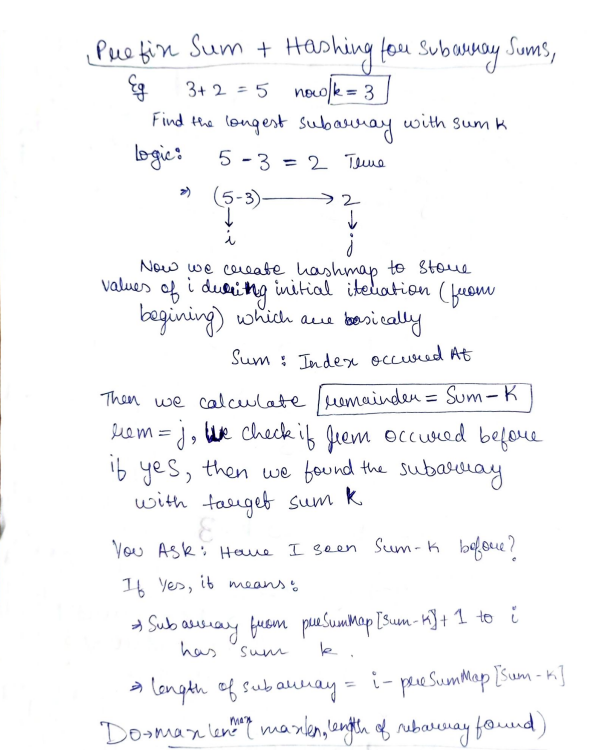 Prefix Sum + Hashing for Subarray Sums,
Eg 3+2 = 5 now k = 3
Find the longest subarray with sum k
Logic: 5 - 3 = 2 True
⇒ (5-3) → 2
↓ ↓
i j
Now we create hashmap to store
values of i during initial iteration (from
begining) which are basically
Sum : Index occured At
Then we calculate remainder = Sum - K
rem = j, We check if rem occured before
if yes, then we found the subarray
with target sum k
You Ask: Have I seen Sum-k before?
If Yes, it means:
→ Subarray from preSumMap[sum-k]+1 to i
has sum k.
→ length of subarray = i - preSumMap[Sum-K]
Do → maxlen = max(maxlen, length of subarray found)